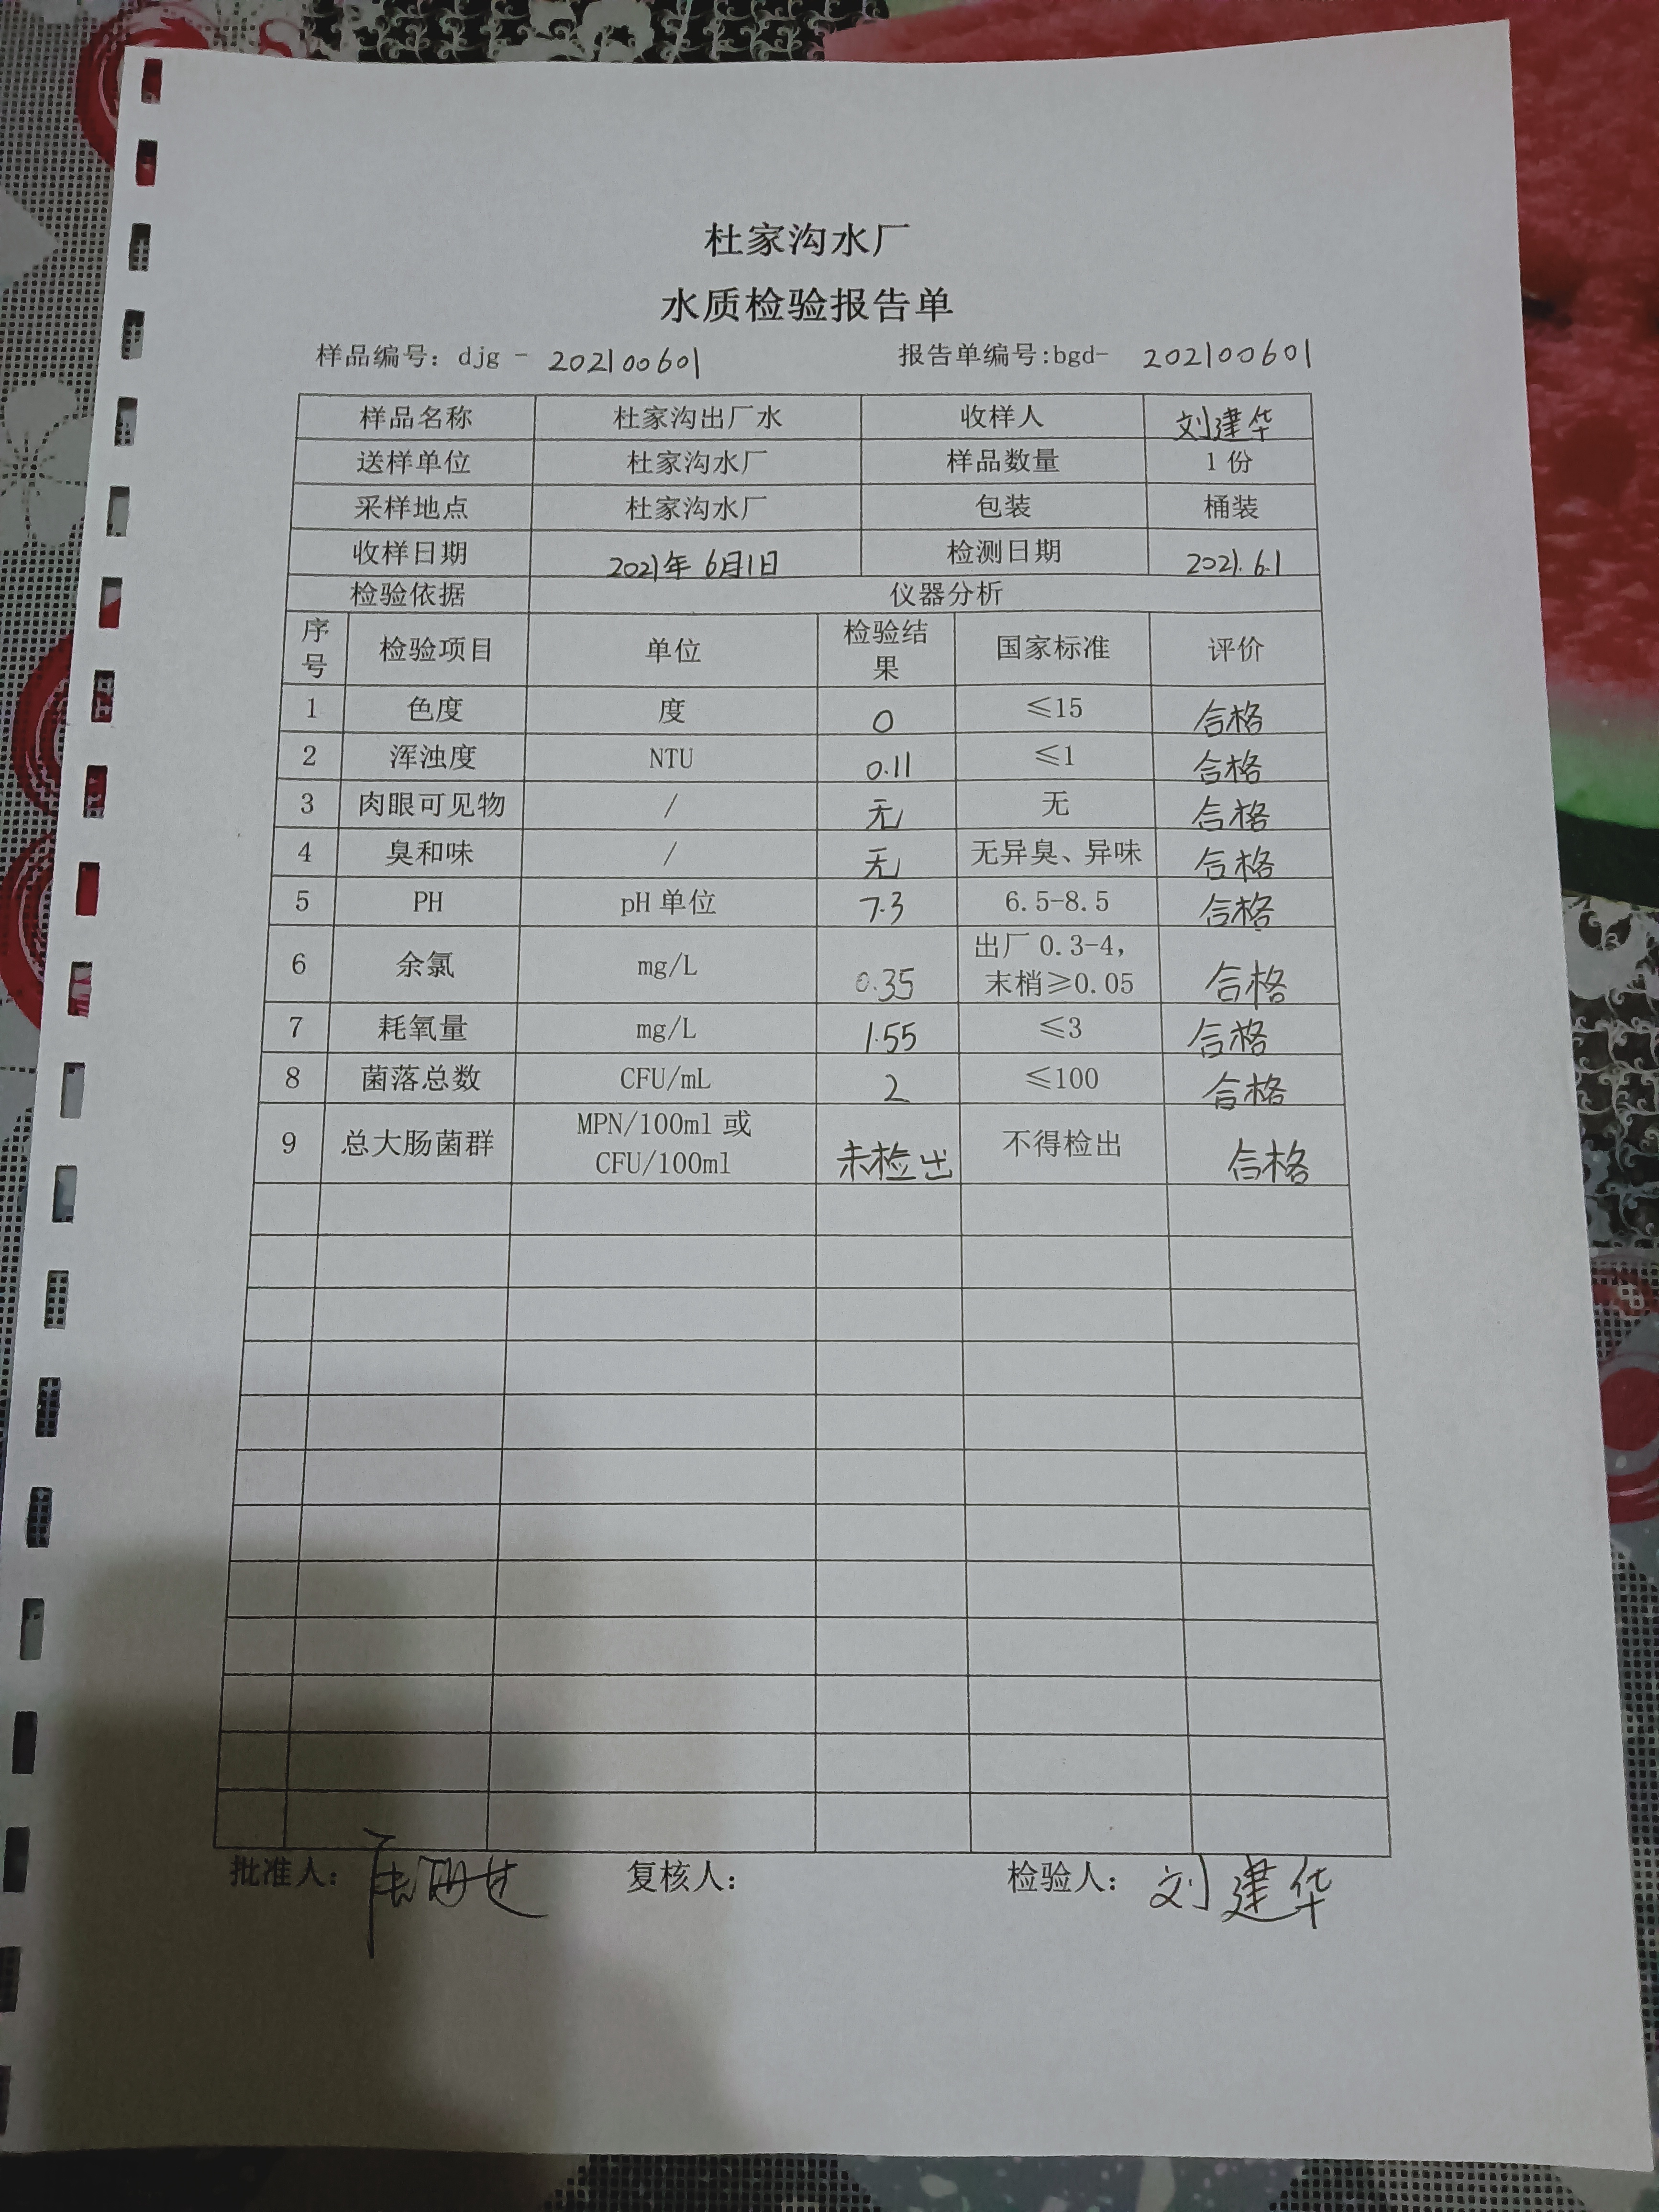 杜家沟水厂
水质检验报告单
样品编号：djg - 202100601 报告单编号:bgd- 202100601
样品名称 杜家沟出厂水 收样人 刘建华
送样单位 杜家沟水厂 样品数量 1 份
采样地点 杜家沟水厂 包装 桶装
收样日期 2021年 6月1日 检测日期 2021.6.1
检验依据 仪器分析
序号 检验项目 单位 检验结果 国家标准 评价
1 色度 度 0 ≤15 合格
2 浑浊度 NTU 0.11 ≤1 合格
3 肉眼可见物 / 无 无 合格
4 臭和味 / 无 无异臭、异味 合格
5 PH pH 单位 7.3 6.5-8.5 合格
6 余氯 mg/L 0.35 出厂 0.3-4，末梢≥0.05 合格
7 耗氧量 mg/L 1.55 ≤3 合格
8 菌落总数 CFU/mL 2 ≤100 合格
9 总大肠菌群 MPN/100ml 或 CFU/100ml 未检出 不得检出 合格
批准人： 复核人： 检验人： 刘建华